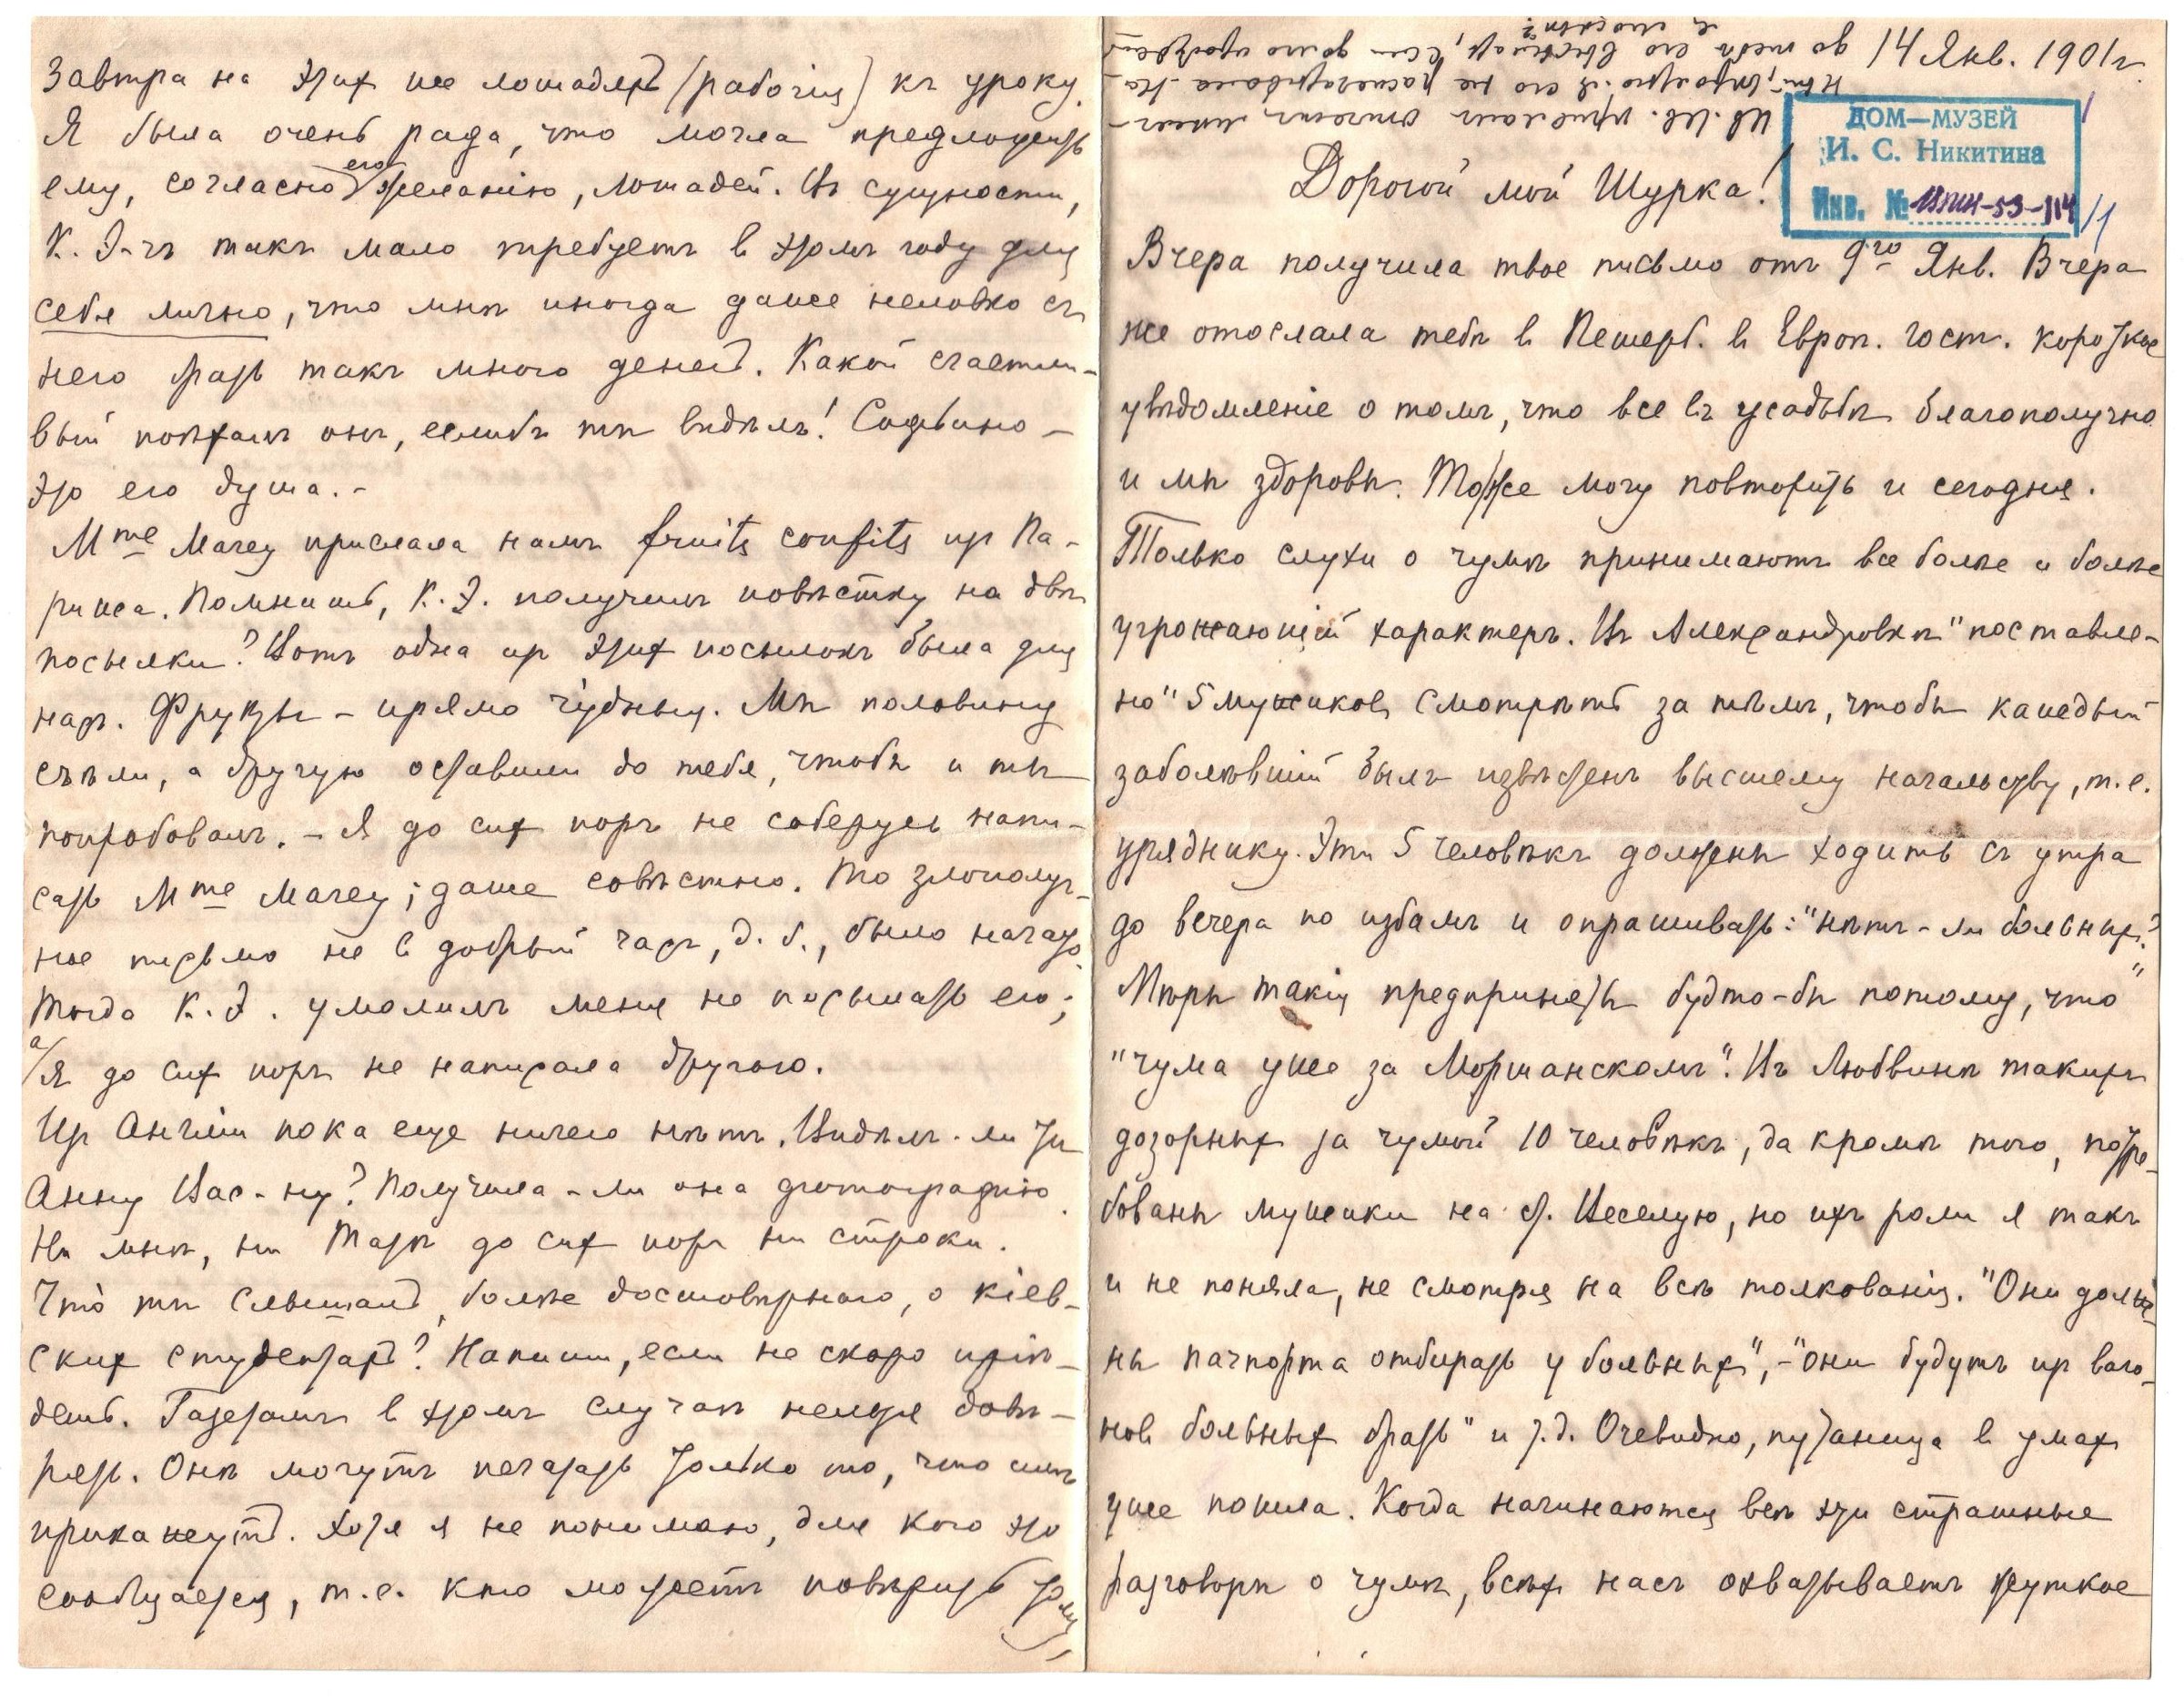 14 Янв. 1901 г.
ДОМ—МУЗЕЙ
И. С. Никитина
Инв. №
Дорогой мой Шурка!
Вчера получила твое письмо отъ 9го Янв. Вчера
же отослала тебѣ в Петерб. в Европ. Гост. короткое
увѣдомленіе о томъ, что все въ усадьбѣ благополучно
и мы здоровы. Тоже могу повторить и сегодня.
Только слухи о чумѣ принимаютъ все болѣе и болѣе
угрожающій характеръ. Въ Александровкѣ "поставле-
но" 5 мужиков смотрѣть за тѣмъ, чтобы каждый
заболѣвшій былъ извѣстенъ высшему начальству, т.е.
уряднику. Эти 5 человѣкъ должны ходить съ утра
до вечера по избамъ и опрашивать: "нѣтъ-ли больных?"
Мѣры такія предприняты будто-бы потому, что
"чума уже за Моршанскомъ". Въ Любвинѣ такихъ
дозорных за чумой 10 человѣкъ, да кромѣ того, потре-
бованы мужики на ст. Веселую, но ихъ роли я такъ
и не поняла, не смотря на всѣ толкованія. "Они долж-
ны пачпорта отбирать у больных", - "они будутъ из ваго-
нов больных брать" и т.д. Очевидно, путаница в умах
уже пошла. Когда начинаются всѣ эти страшные
разговоры о чумѣ, всѣх насъ охватываетъ жуткое
Ив. Ив. прислалъ
его не распечатывала.
до тебя его высылать, если долго пробудешь
завтра на этих же лошадях (рабочія) къ уроку.
Я была очень рада, что могла предложить
ему, согласно его желанію, лошадей. Въ сущности,
К. Э-чъ такъ мало требуетъ в этомъ году для
себя лично, что мнѣ иногда даже неловко съ
него брать такъ много денегъ. Какой счастли-
вый поѣхалъ онъ, еслибъ ты видѣлъ! Софьино —
это его душа. -
Mme Магеу прислала намъ fruits confits из Па-
рижа. Помнишь, К. Э. получилъ повѣстку на двѣ
посылки? Вотъ одна из этих посылокъ была для
насъ. Фрукты - прямо чудныя. Мы половину
съѣли, а другую оставили до тебя, чтобы и ты
попробовалъ. - Я до сих поръ не соберусь напи-
сать Mme Магеу; даже совѣстно. То злополуч-
ное письмо не в добрый часъ, д. б., было начато.
Тогда К. Э. умолилъ меня не посылать его;
а я до сих поръ не написала другого.
Из Англіи пока еще ничего нѣтъ. Видѣлъ-ли ты
Анну Вас-ну? Получила-ли она фотографію.
Ни мнѣ, ни Татѣ до сих поръ ни строки.
Что ты слышалъ, болѣе достовѣрного, о кіев-
ских студентахъ? Напиши, если не скоро пріѣ-
дешь. Газетамъ в этомъ случаѣ нельзя довѣ-
рять. Онѣ могутъ печатать только то, что имъ
прикажутъ. Хотя я не понимаю, для кого это
сообщается, т.е. кто можетъ повѣрить тому